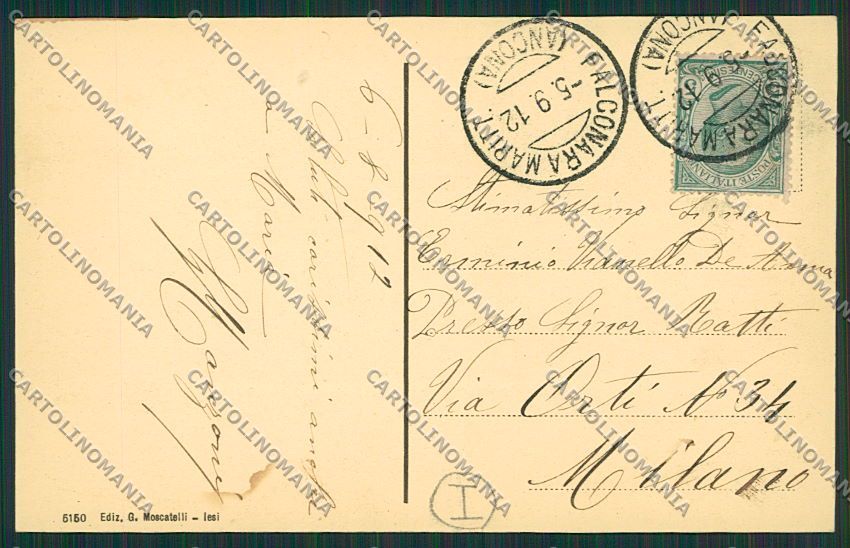 6-8 912
Saluti carissimi anche
a Maria
Manzoni
5150 Ediz. G. Moscatelli - Iesi
FALCONARA MARITT.
(ANCONA)
-5.9.12
FALCONARA MARITT.
(ANCONA)
-5.9.12
POSTE ITALIANE
Stimatissimo Signor
Erminio Vianello De Anna
Presso Signor Ratti
Via Orti No 34
Milano
I
CARTOLINOMANIA